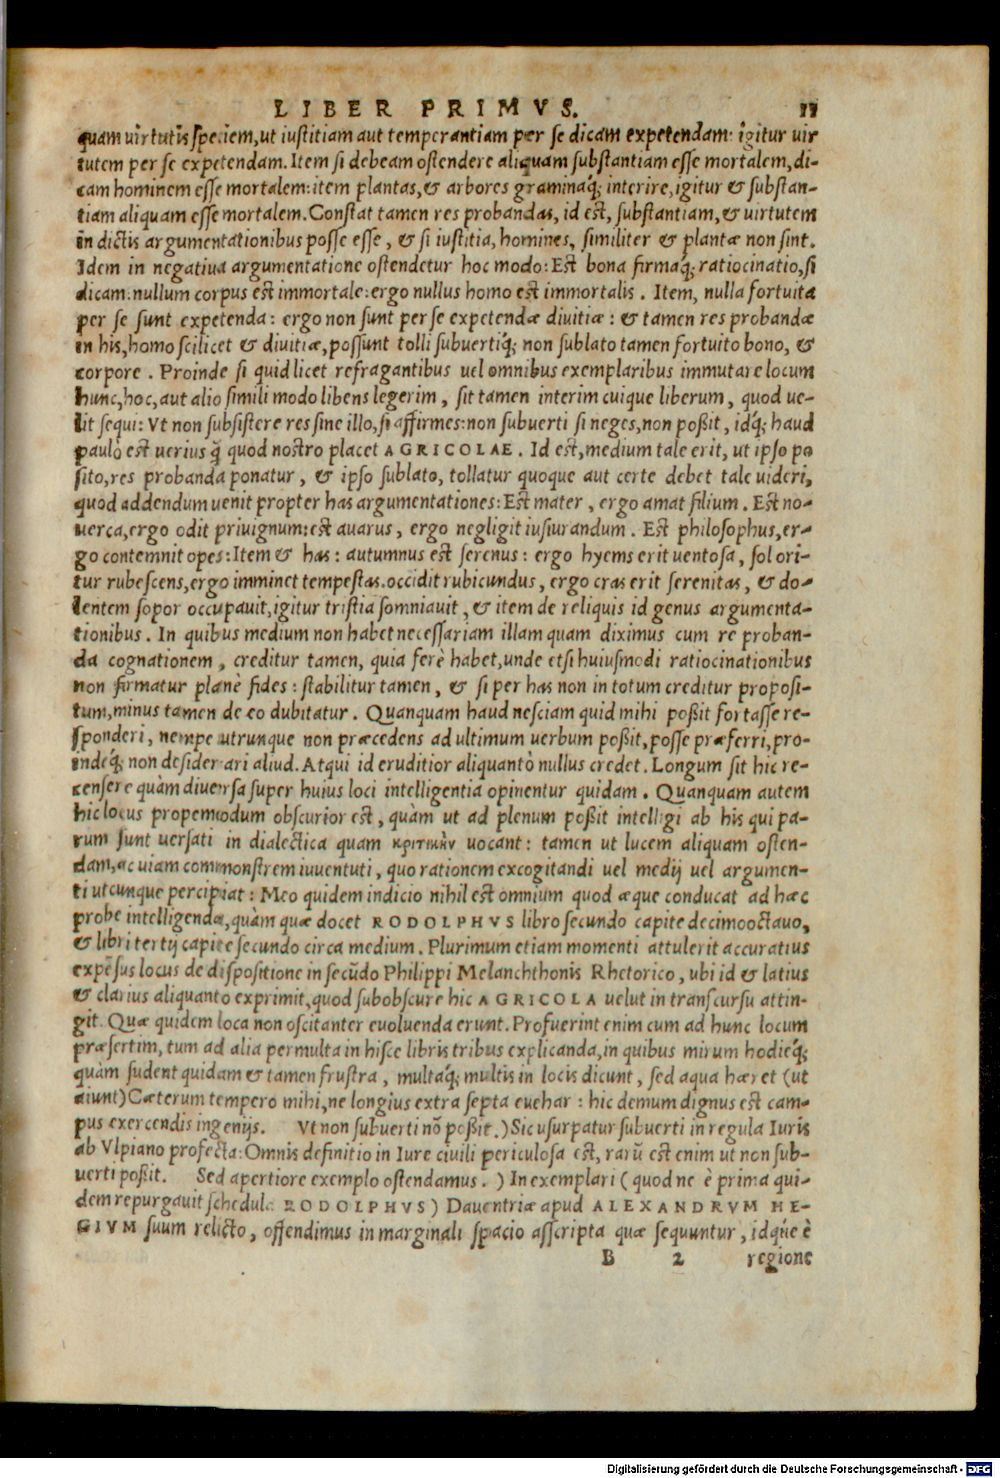 LIBER PRIMVS. 11
quam uirtutis speciem, ut iustitiam aut temperantiam per se dicam expetendam: igitur uir
tutem per se expetendam. Item si debeam ostendere aliquam substantiam esse mortalem, di-
cam hominem esse mortalem: item plantas, & arbores graminaq́; interire, igitur & substan-
tiam aliquam esse mortalem. Constat tamen res probandas, id est, substantiam, & uirtutem
in dictis argumentationibus posse esse, & si iustitia, homines, similiter & plantæ non sint.
Idem in negatiua argumentatione ostendetur hoc modo: Est bona firmaq́; ratiocinatio, si
dicam: nullum corpus est immortale: ergo nullus homo est immortalis. Item, nulla fortuita
per se sunt expetenda: ergo non sunt per se expetendæ diuitiæ: & tamen res probandæ
in his, homo scilicet & diuitiæ, possunt tolli subuertiq́; non sublato tamen fortuito bono, &
corpore. Proinde si quid licet refragantibus uel omnibus exemplaribus immutare locum
hunc, hoc, aut alio simili modo libens legerim, sit tamen interim cuique liberum, quod ue-
lit sequi: Vt non subsistere res sine illo, si affirmes: non subuerti si neges, non poßit, idq́; haud
paulò est uerius q̃ quod nostro placet AGRICOLAE. Id est, medium tale erit, ut ipso po
sito, res probanda ponatur, & ipso sublato, tollatur quoque aut certe debet tale uideri,
quod addendum uenit propter has argumentationes: Est mater, ergo amat filium. Est no-
uerca, ergo odit priuignum: est auarus, ergo negligit iusiurandum. Est philosophus, er-
go contemnit opes: Item & has: autumnus est serenus: ergo hyems erit uentosa, sol ori-
tur rubescens, ergo imminet tempestas. occidit rubicundus, ergo cras erit serenitas, & do-
lentem sopor occupauit, igitur tristia somniauit, & item de reliquis id genus argumenta-
tionibus. In quibus medium non habet necessariam illam quam diximus cum re proban-
da cognationem, creditur tamen, quia ferè habet, unde etsi huiusmodi ratiocinationibus
non firmatur planè fides: stabilitur tamen, & si per has non in totum creditur proposi-
tum, minus tamen de eo dubitatur. Quanquam haud nesciam quid mihi poßit fortasse re-
sponderi, nempe utrunque non præcedens ad ultimum uerbum poßit, posse præferri, pro-
indeq́; non desiderari aliud. Atqui id eruditior aliquantò nullus credet. Longum sit hic re-
censere quàm diuersa super huius loci intelligentia opinentur quidam. Quanquam autem
hic locus propemodum obscurior est, quàm ut ad plenum poßit intelligi ab his qui pa-
rum sunt uersati in dialectica quam κριτικὴν uocant: tamen ut lucem aliquam osten-
dam, ac uiam commonstrem iuuentuti, quo rationem excogitandi uel medij uel argumen-
ti utcunque percipiat: Meo quidem indicio nihil est omnium quod æque conducat ad hæc
probe intelligenda, quàm quæ docet RODOLPHVS libro secundo capite decimooctauo,
& libri tertij capite secundo circa medium. Plurimum etiam momenti attulerit accuratius
expẽsus locus de dispositione in secũdo Philippi Melanchthonis Rhetorico, ubi id & latius
& clarius aliquanto exprimit, quod subobscure hic AGRICOLA uelut in transcursu attin-
git. Quæ quidem loca non oscitanter euoluenda erunt. Profuerint enim cum ad hunc locum
præsertim, tum ad alia permulta in hisce libris tribus explicanda, in quibus mirum hodieq́;
quàm sudent quidam & tamen frustra, multaq́; multis in locis dicunt, sed aqua hæret (ut
aiunt) Cæterum tempero mihi, ne longius extra septa euehar: hic demum dignus est cam-
pus exercendis ingenijs. Vt non subuerti nõ poßit.) Sic usurpatur subuerti in regula Iuris
ab Vlpiano profecta: Omnis definitio in Iure ciuili periculosa est, rarũ est enim ut non sub-
uerti poßit. Sed apertiore exemplo ostendamus.) In exemplari (quod ne è prima qui-
dem repurgauit schedula RODOLPHVS) Dauentriæ apud ALEXANDRVM HE-
GIVM suum relicto, offendimus in marginali spacio asscripta quæ sequuntur, idque è
B 2 regione
Digitalisierung gefördert durch die Deutsche Forschungsgemeinschaft - DFG